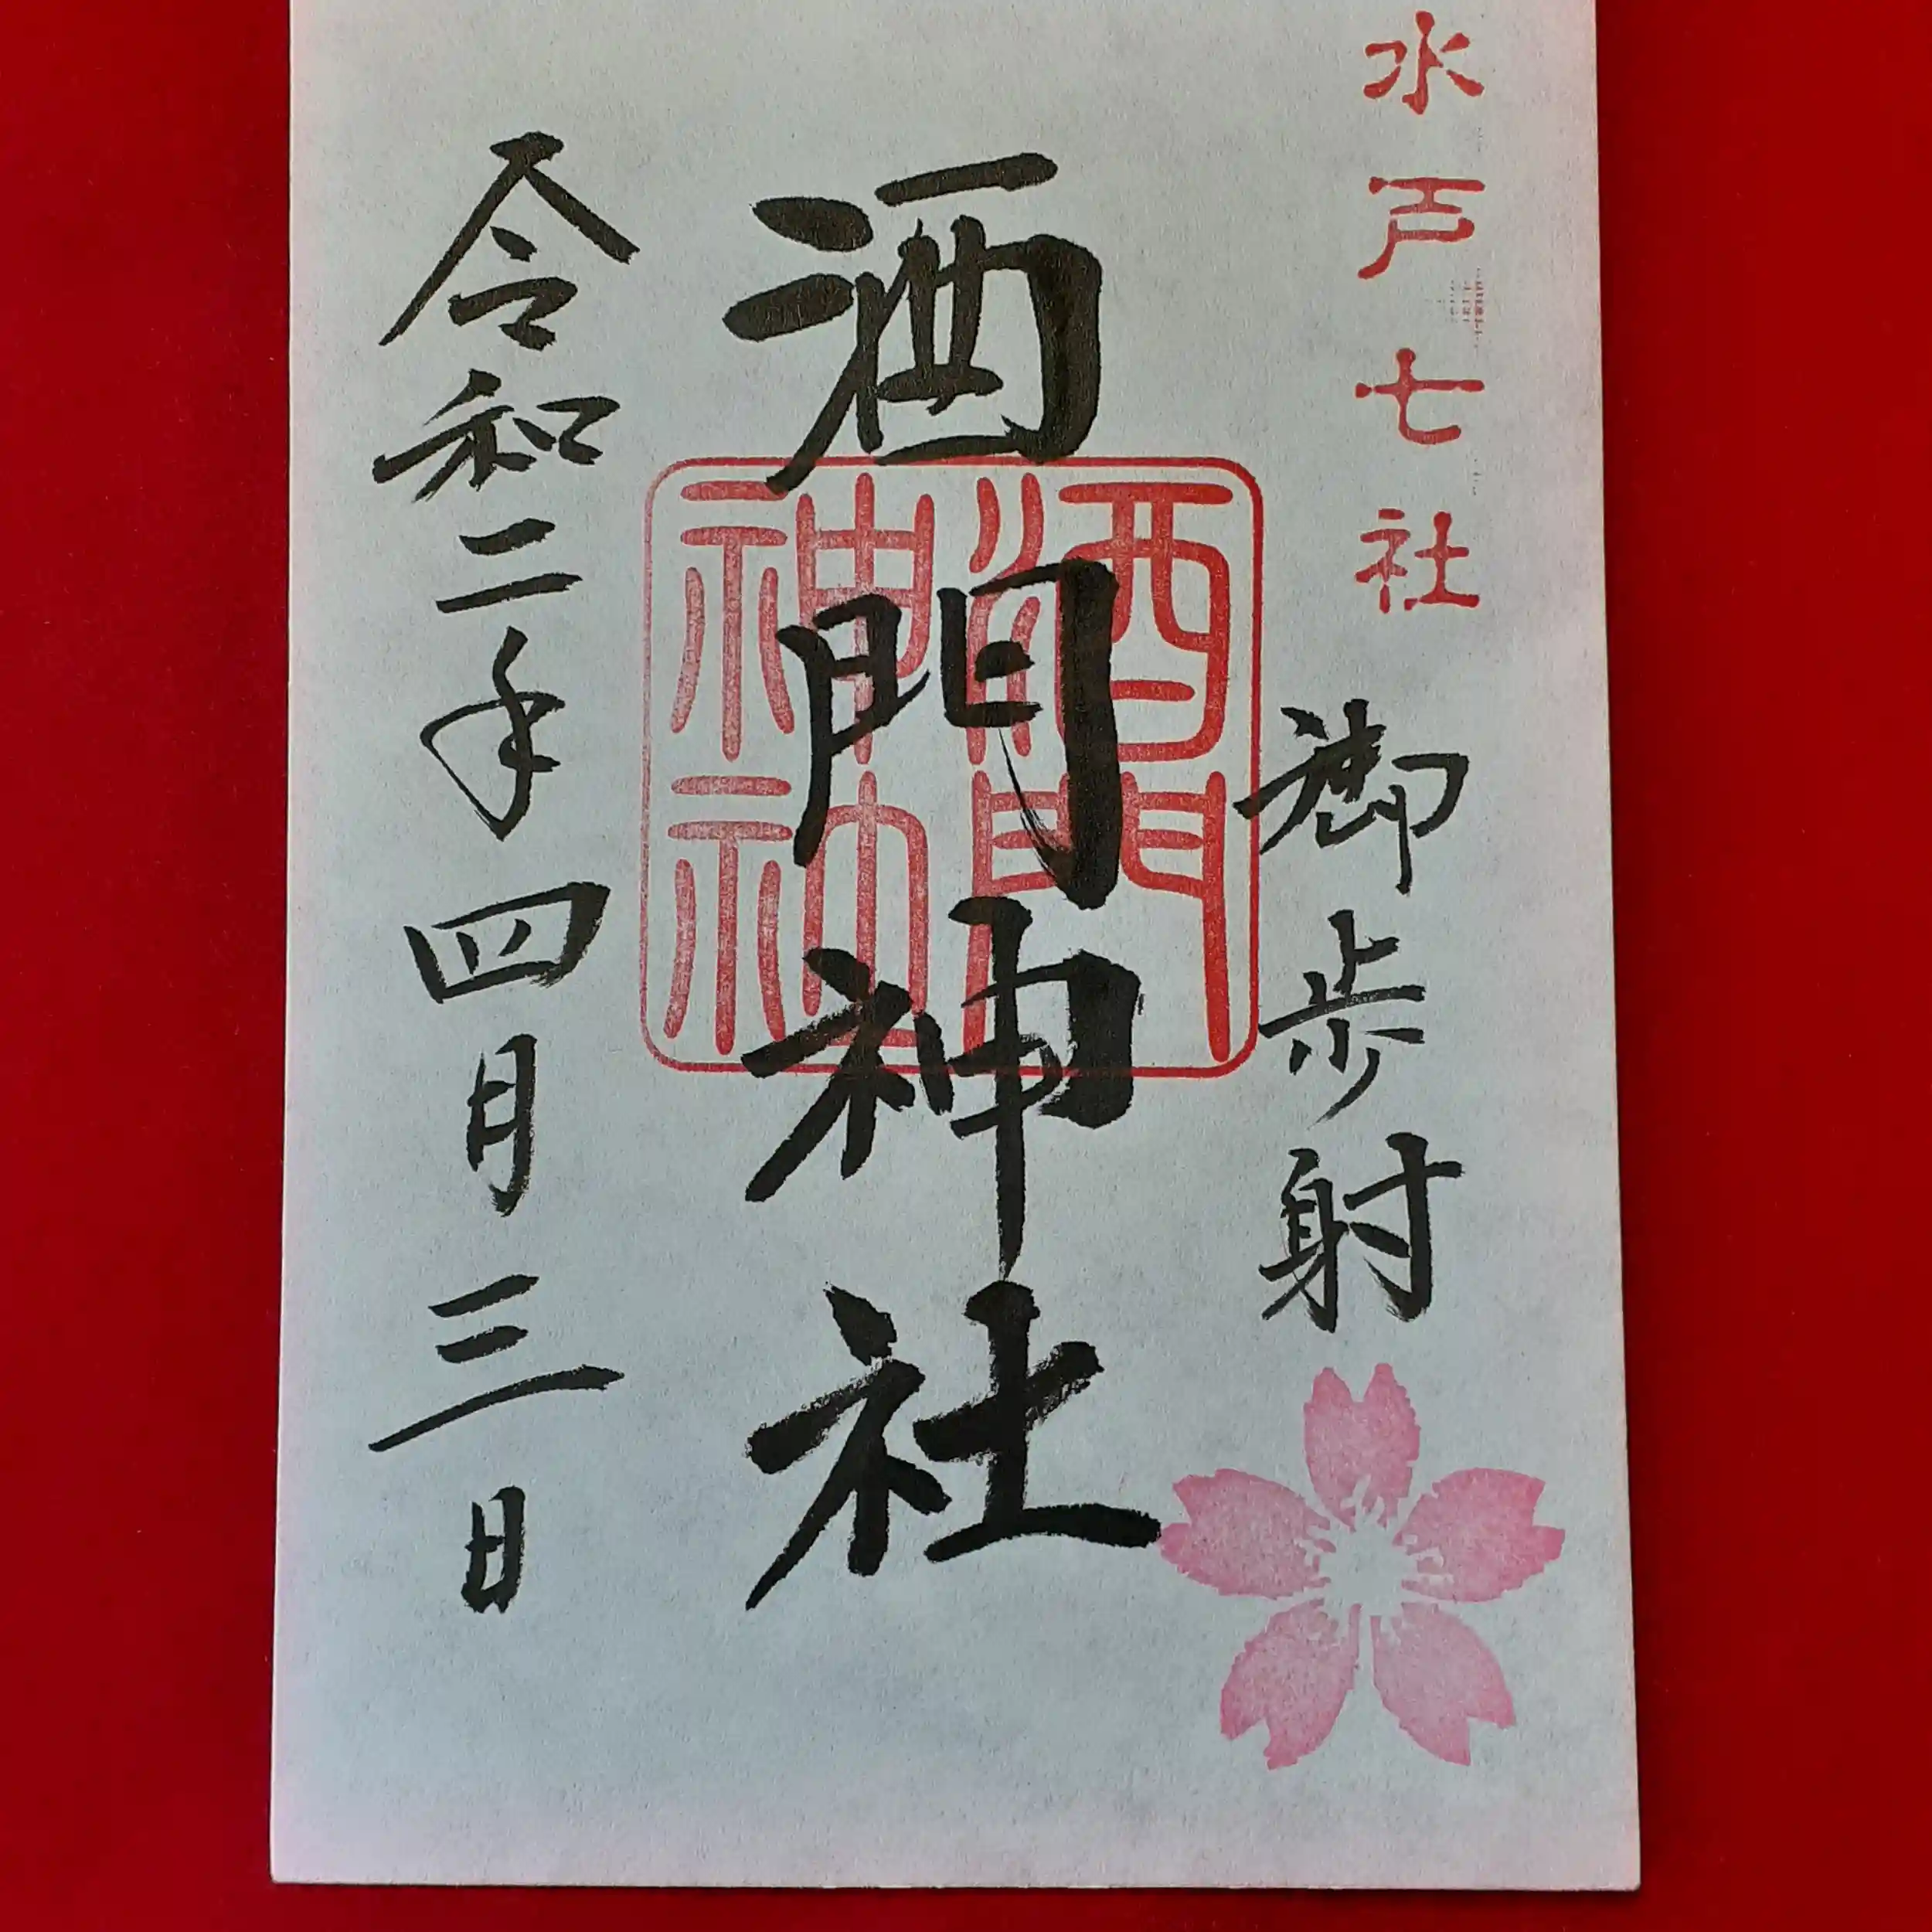 水戸七社
御歩射
酒門神社
酒門
神社
令和二年四月三日